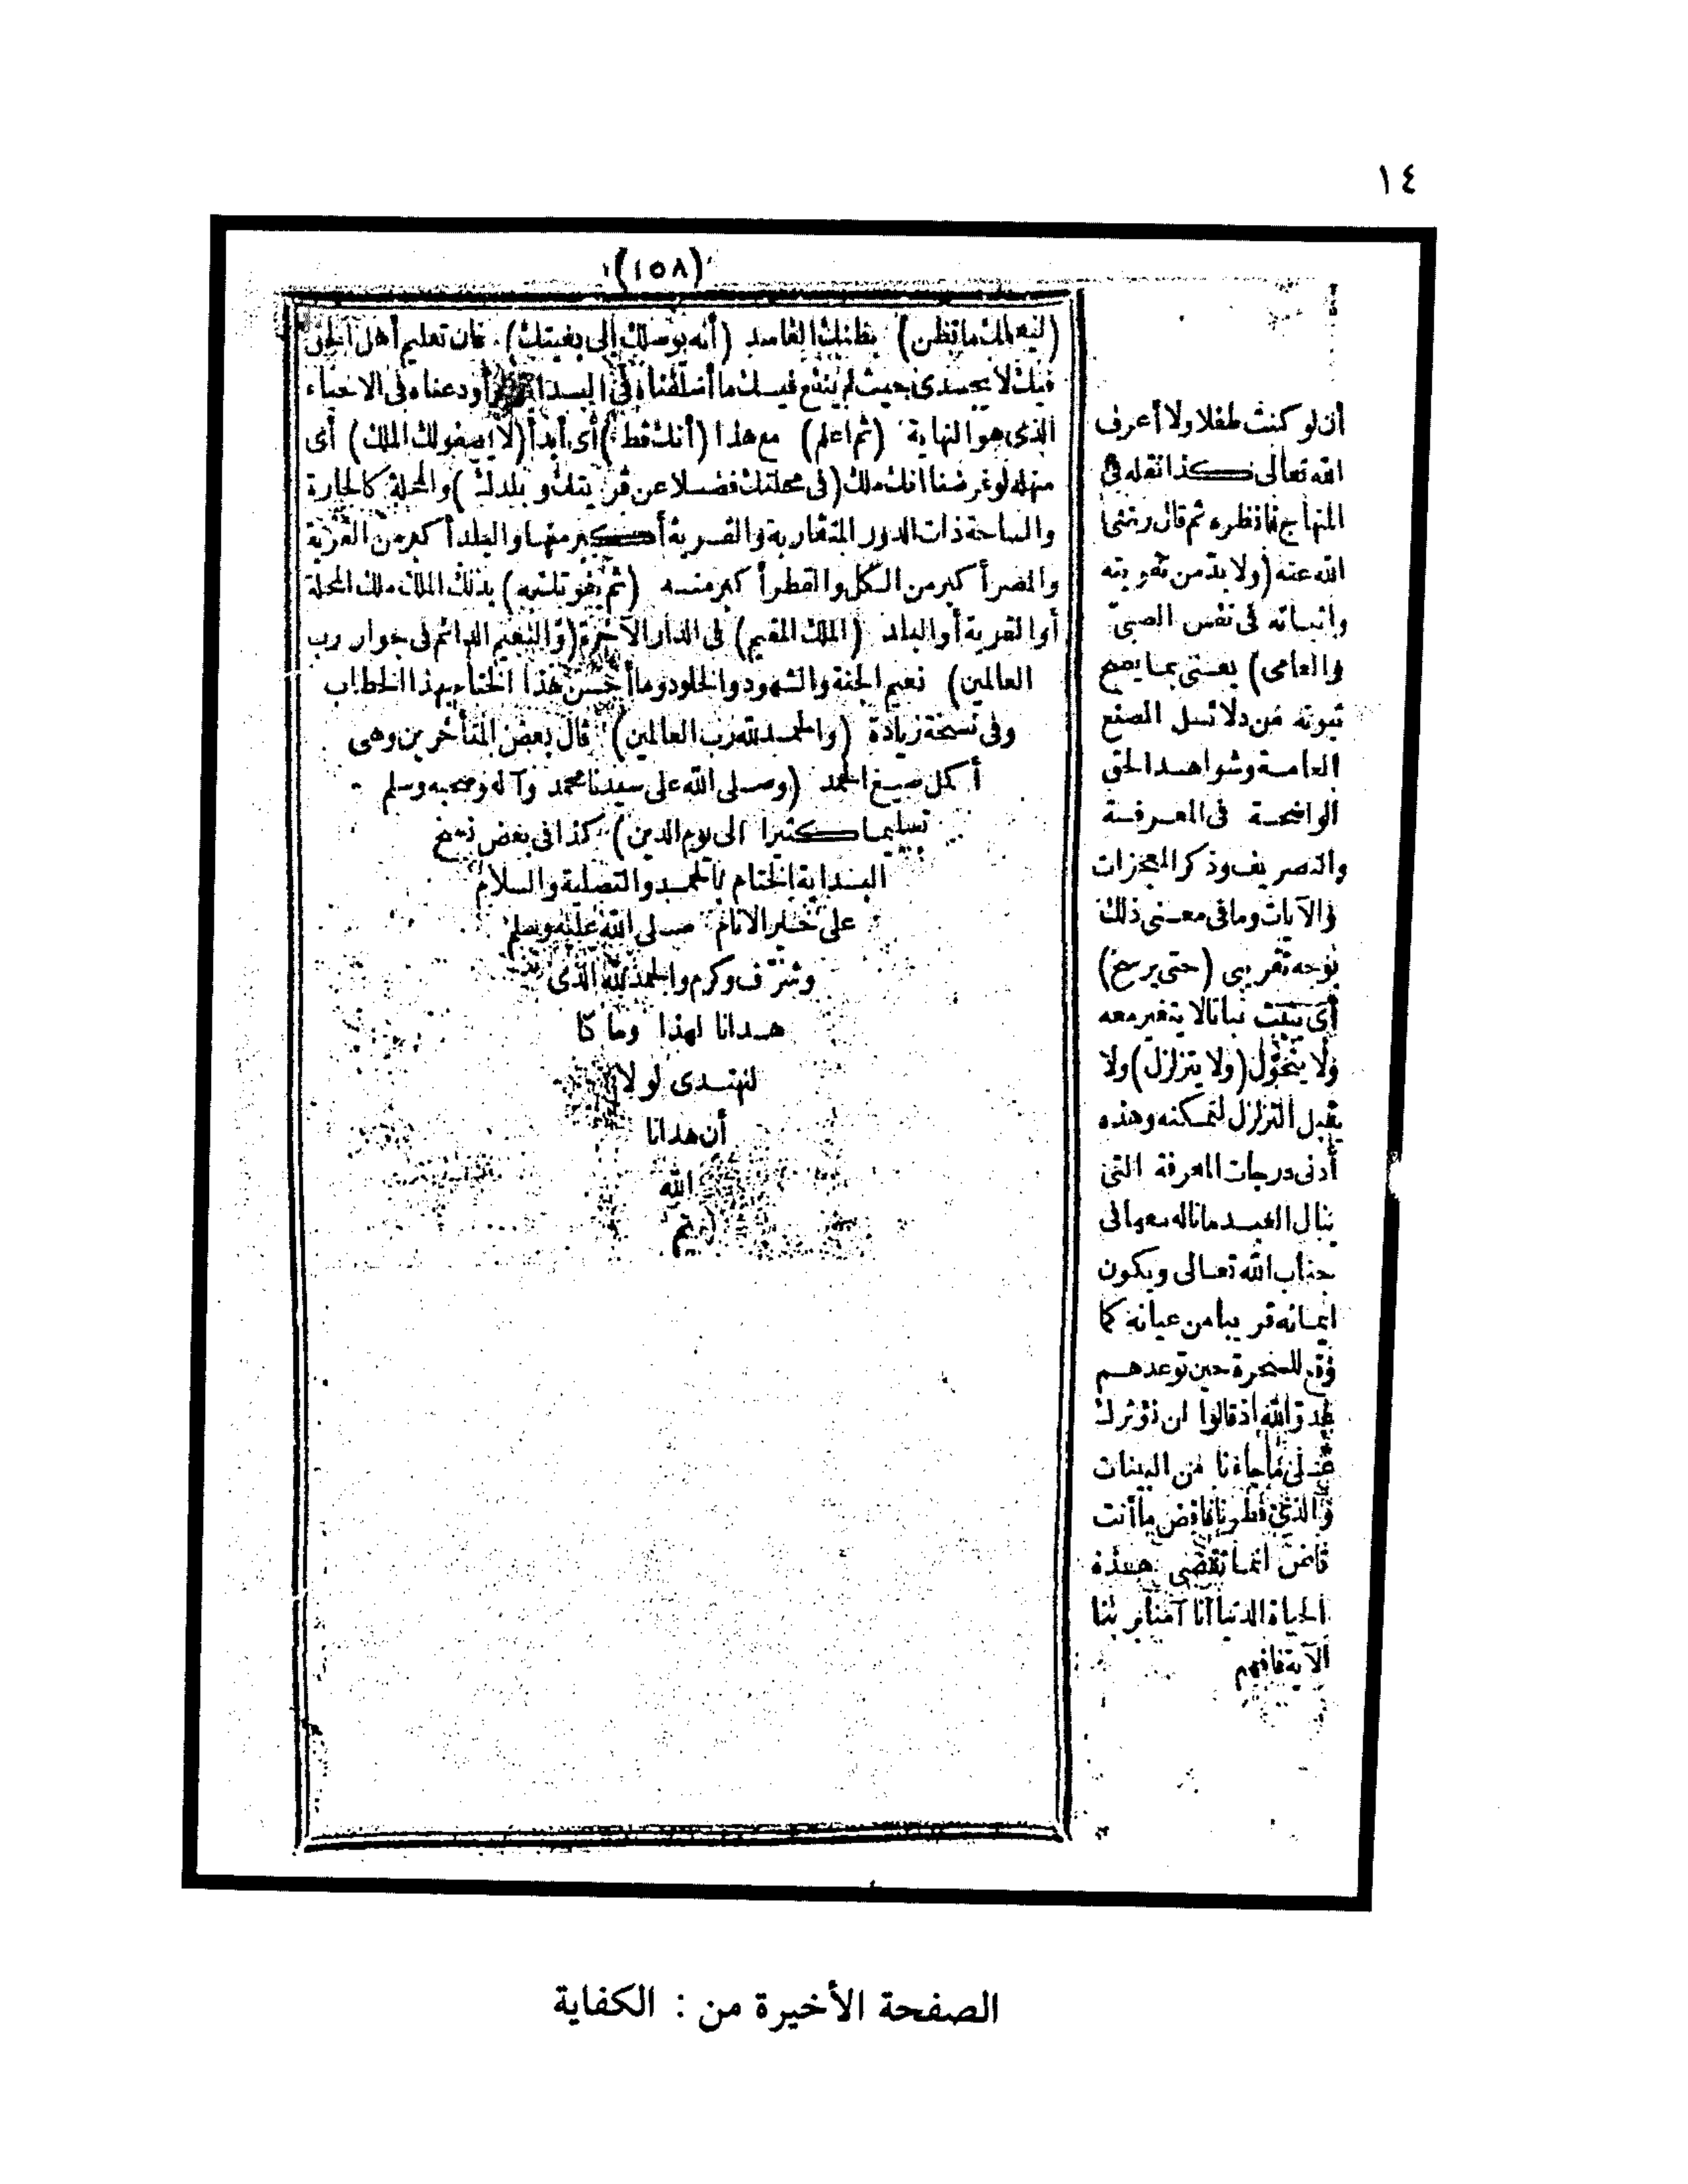 ١٤
(١٥٨)
(ليهملك ما تظن) بظنك الفاسد (أنه يوصلك إلى بغيتك) فان تعليم أهل الحق
فيك لا يجدى حيث لم ينتفع فيك ما أسلفناه فى البداية وأودعناه فى الاحياء
الذى هو النهاية (ثم اعلم) مع هذا (أنك قط) أى أبدا (لا يصفو لك الملك) أى
منه لو فرضنا انك ملك (فى محلتك فضلا عن قريتك وبلدك) والمحلة كالحارة
والساحة ذات الدور المتقاربة والقرية أكبر منها والبلد أكبر من القرية
والمصر أكبر من الكل والقطر أكبر منه (ثم يفوتك به) بذلك الملك ملك المحلة
أو القرية أو البلد (الملك المقيم) فى الدار الآخرة (والنعيم الدائم فى جوار رب
العالمين) نعيم الجنة والشهود والخلود وما أحسن هذا الختام بهذا الخطاب
وفى نسخة زيادة (والحمد لله رب العالمين) قال بعض المتأخرين وهى
أكمل صيغ الحمد (وصلى الله على سيدنا محمد وآله وصحبه وسلم
تسليما كثيرا الى يوم الدين) كذا فى بعض نسخ
البداية الختام بالحمد والتصلية والسلام
على خير الانام صلى الله عليه وسلم
وشرف وكرم والحمد لله الذى
هدانا لهذا وما كنا
لنهتدى لولا
أن هدانا
الله
تم
أن لو كنت طفلا ولا أعرف
الله تعالى كذا نقله فى
المنهاج فانظره ثم قال رضى
الله عنه (ولا بد من تقويته
واثباته فى نفس الصبى
والعامى) يعنى بما يصح
ثبوته من دلائل الصنع
العامة وشواهد الحق
الواضحة فى المعرفة
والتصريف وذكر المعجزات
والآيات وما فى معنى ذلك
بوجه تقريبى (حتى يرسخ)
أى يثبت ثباتا لا يتغير معه
ولا يتحول (ولا يتزلزل) ولا
يقبل التزلزل لتمكنه وهذه
أدنى درجات المعرفة التى
ينال العبد ما ناله بها فى
جناب الله تعالى ويكون
ايمانه قريبا من عيانه كما
وقع للسحرة حين توعدهم
عدو الله اذ قالوا لن نؤثرك
على ما جاءنا من البينات
والذى فطرنا فاقض ما أنت
قاض انما تقضى هذه
الحياة الدنيا انا آمنا بربنا
الآية فافهم
الصفحة الأخيرة من : الكفاية